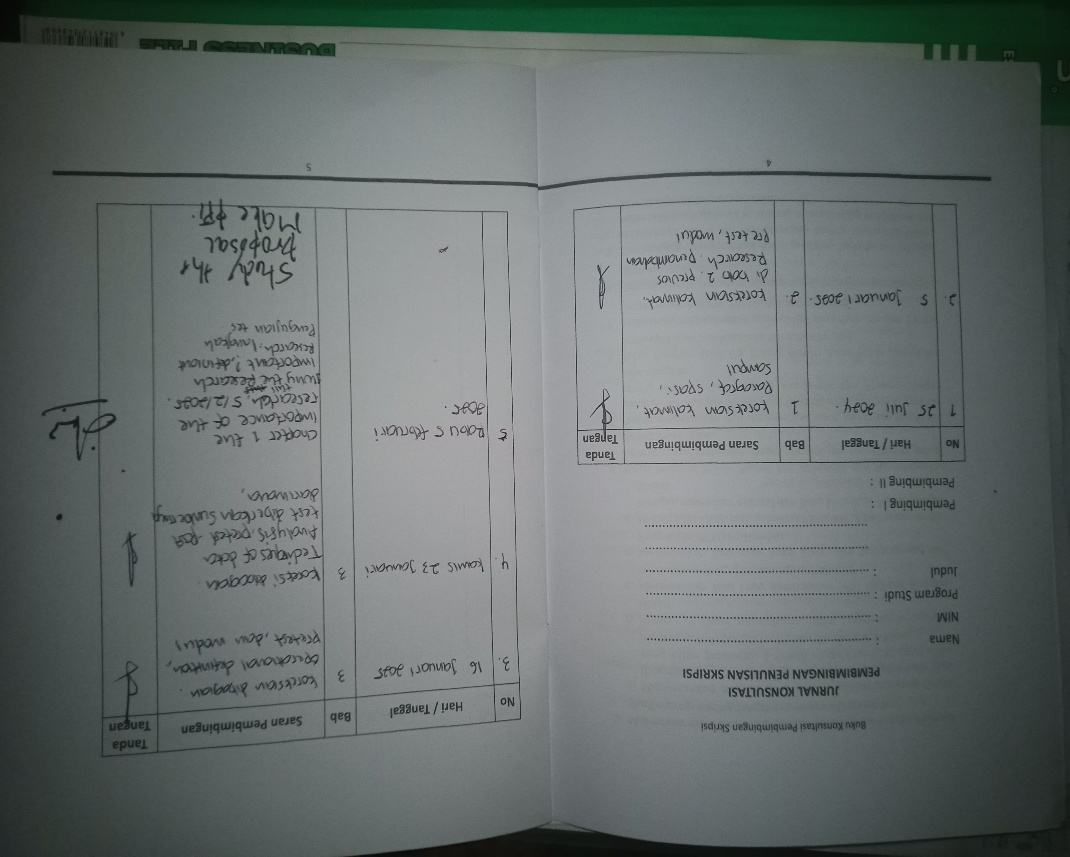 Buku Konsultasi Pembimbingan Skripsi
JURNAL KONSULTASI
PEMBIMBINGAN PENULISAN SKRIPSI
Nama :
NIM :
Program Studi :
Judul :
Pembimbing I :
Pembimbing II :
No Hari / Tanggal Bab Saran Pembimbingan Tanda Tangan
1 25 Juli 2024. 1 koreksian kalimat,
Paragraf, spasi,
Sampul
2. 5 Januari 2025. 2. koreksian kalimat,
di bab 2. previos
Research penambahan
Pretest, modul
4
No Hari / Tanggal Bab Saran Pembimbingan Tanda Tangan
3. 16 Januari 2025 3 koreksian dibagian
operational definition,
Pretest, dan modul
4. kamis 23 Januari 3 koreksi dibagian
Techniques of data
Analysis, pretest-post
test diberikan sumbernya
darimana,
5 Rabu 5 februari
2025. Chapter 1 the
importance of the
research, 5/2/2025.
why the Research
important?, definiont
Research. langkah
Pengujian tes
Study the
proposal
Make ppt.
5
BUSINESS FILE